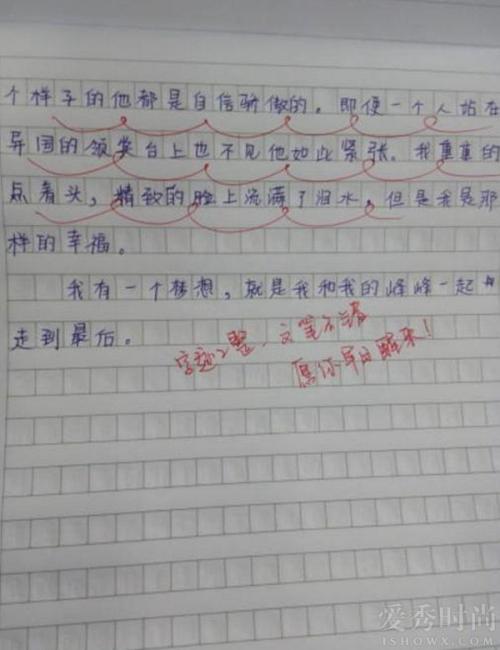 个样子的他都是自信骄傲的。即便一个人站在
异国的领奖台上也不见他如此紧张。我重重的
点着头，精致的脸上流满了泪水，但是我是那
样的幸福。
我有一个梦想，就是我和我的峰峰一起
走到最后。
字迹工整，文笔不错
愿你早日醒来！
爱秀时尚
ISHOWX.COM